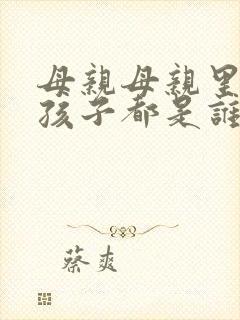 母親母親里
孩子都是誰
蔡爽